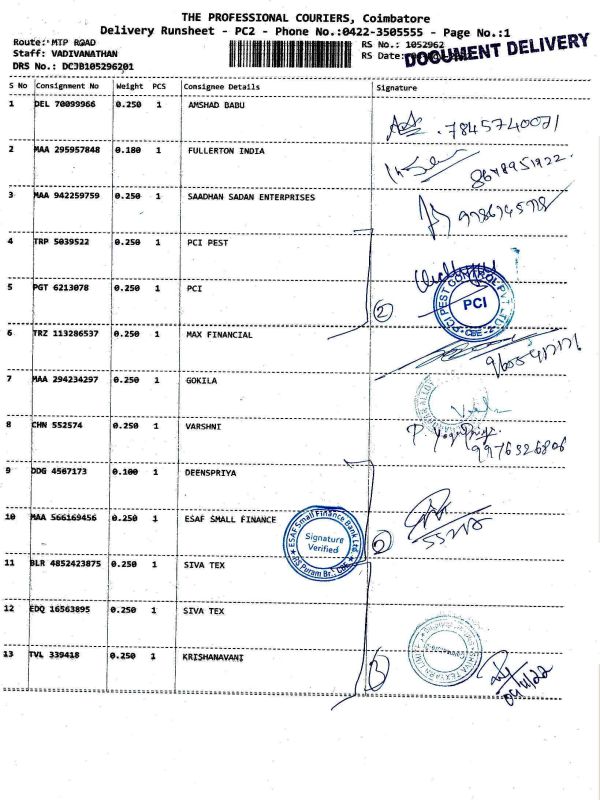 THE PROFESSIONAL COURIERS, Coimbatore
Delivery Runsheet - PC2 - Phone No.:0422-3505555 - Page No.:1
Route: MTP ROAD
RS No.: 1052962
Staff: VADIVANATHAN
RS Date:
DOCUMENT DELIVERY
DRS No.: DCJB105296201
S No Consignment No Weight PCS Consignee Details Signature
1 DEL 70099966 0.250 1 AMSHAD BABU
7845740071
2 MAA 295957848 0.180 1 FULLERTON INDIA
8678951922
3 MAA 942259759 0.250 1 SAADHAN SADAN ENTERPRISES
4 TRP 5039522 0.250 1 PCI PEST
5 PGT 6213078 0.250 1 PCI
2
PCI PEST CONTROL PVT. LTD. CBE-2
PCI
6 TRZ 113286537 0.250 1 MAX FINANCIAL
7 MAA 294234297 0.250 1 GOKILA
8 CHN 552574 0.250 1 VARSHNI
9976326806
9 DDG 4567173 0.100 1 DEENSPRIYA
10 MAA 566169456 0.250 1 ESAF SMALL FINANCE
ESAF Small Finance Bank Ltd.
Signature
Verified
RS Puram Br., CBE
2
55212
11 BLR 4852423875 0.250 1 SIVA TEX
12 EDQ 16563895 0.250 1 SIVA TEX
13 TVL 339418 0.250 1 KRISHANAVANI
3